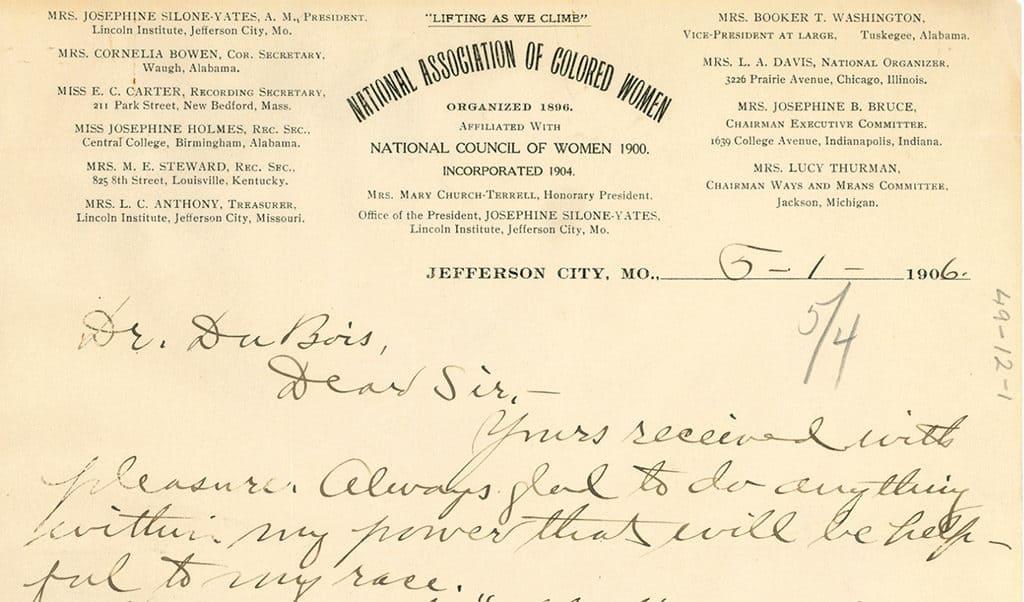 MRS. JOSEPHINE SILONE-YATES, A. M., PRESIDENT.
Lincoln Institute, Jefferson City, Mo.
MRS. CORNELIA BOWEN, COR. SECRETARY,
Waugh, Alabama.
MISS E. C. CARTER, RECORDING SECRETARY,
211 Park Street, New Bedford, Mass.
MISS JOSEPHINE HOLMES, REC. SEC.,
Central College, Birmingham, Alabama.
MRS. M. E. STEWARD, REC. SEC.,
825 8th Street, Louisville, Kentucky.
MRS. L. C. ANTHONY, TREASURER,
Lincoln Institute, Jefferson City, Missouri.
"LIFTING AS WE CLIMB"
NATIONAL ASSOCIATION OF COLORED WOMEN
ORGANIZED 1896.
AFFILIATED WITH
NATIONAL COUNCIL OF WOMEN 1900.
INCORPORATED 1904.
MRS. MARY CHURCH-TERRELL, HONORARY PRESIDENT.
Office of the President, JOSEPHINE SILONE-YATES,
Lincoln Institute, Jefferson City, Mo.
MRS. BOOKER T. WASHINGTON,
VICE-PRESIDENT AT LARGE, Tuskegee, Alabama.
MRS. L. A. DAVIS, NATIONAL ORGANIZER,
3226 Prairie Avenue, Chicago, Illinois.
MRS. JOSEPHINE B. BRUCE,
CHAIRMAN EXECUTIVE COMMITTEE.
1639 College Avenue, Indianapolis, Indiana.
MRS. LUCY THURMAN,
CHAIRMAN WAYS AND MEANS COMMITTEE,
Jackson, Michigan.
JEFFERSON CITY, MO., 5-1- 1906.
5/4
49-12-1
Dr. Du Bois,
Dear Sir,-
Yours received with
pleasure. Always glad to do anything
within my power that will be help-
ful to my race.